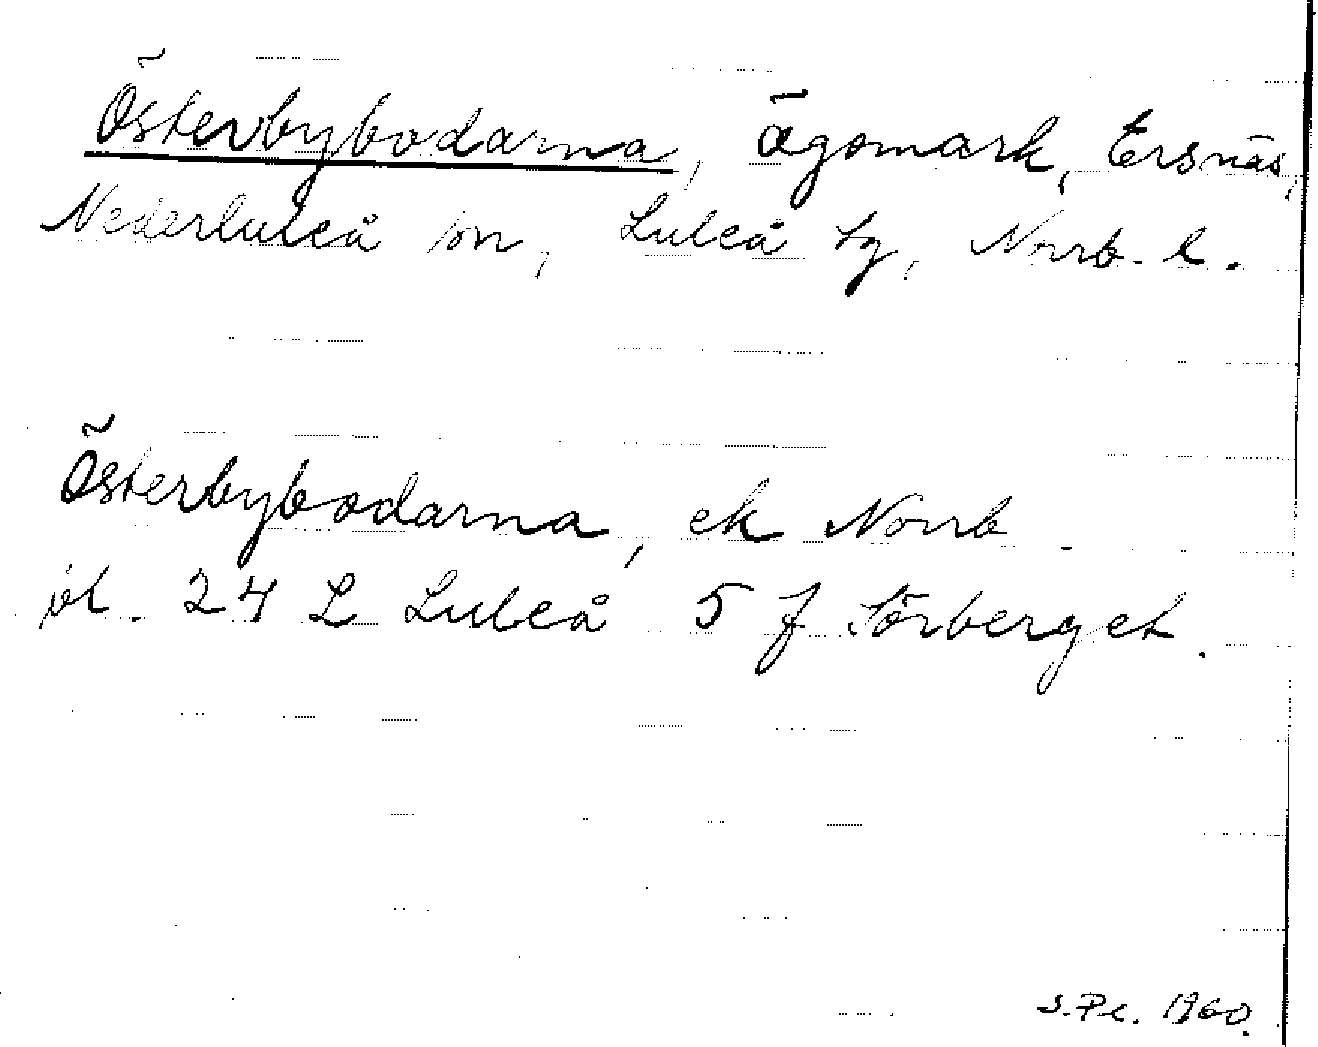 Österbybodarna, Ägomark, Ersnäs,
Nederluleå sn, Luleå tg, Norrb. l.
Österbybodarna, ek Norrb
bl. 24 L Luleå 5 f Sörberget.
S. Pe. 1960.